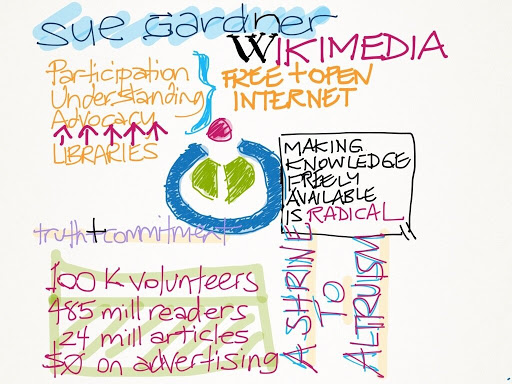 Sue Gardner
WIKIMEDIA
Participation
Understanding
Advocacy
LIBRARIES
FREE + OPEN
INTERNET
MAKING
KNOWLEDGE
FREELY
AVAILABLE
IS RADICAL
truth + commitment
100K volunteers
485 mill readers
24 mill articles
$0 on advertising
A SHRINE
TO
ALTRUISM